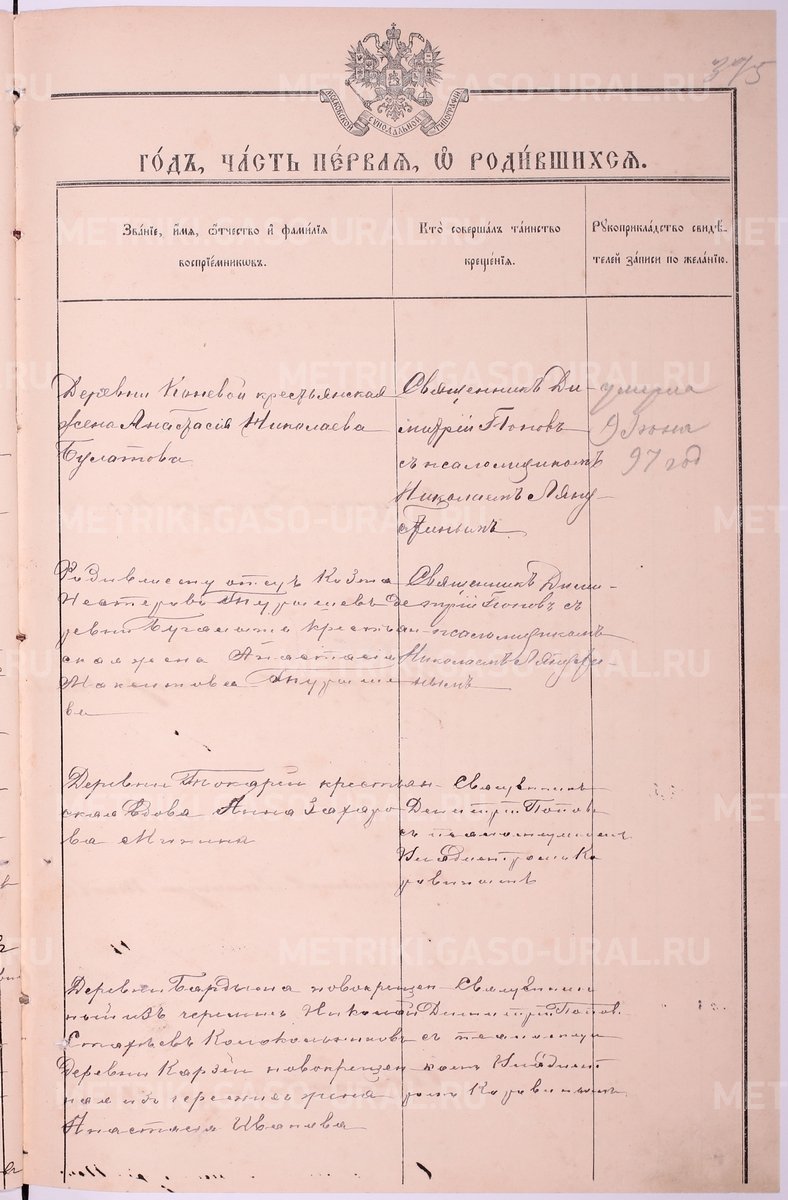 375
МОСКОВСКОЙ СѴНОДАЛЬНОЙ ТИПОГРАФІИ
ГО́ДЪ, ЧА́СТЬ ПЕ́РВАЯ, Ѡ҆ РОДИ́ВШИХСЯ.
Зва́нїе, и҆́мя, ѻ҆́тчество и҆ фами́лїя
воспрїе́мникѡвъ.
Кто̀ соверша́лъ та́инство
креще́нїя.
Рꙋкоприкла́дство свидѣ́-
телей за́писи по жела́нїю.
Деревни Коневой крестьянская
жена Анастасія Николаева
Булатова
Священникъ Ди-
митрій Поповъ
съ псаломщикомъ
Николаемъ
умерла
9 Іюня
97 год
Родившему отецъ Козма
Нестеровъ де-
ревни крестьян-
ская жена Анастасія
ва
Священникъ Дими-
трій Поповъ съ
псаломщикомъ
Николаемъ
нымъ
Деревни Токарей крестьян-
ская вдова Анна Захаро
ва Мизина
Священникъ
Димитрій Поповъ
съ псаломщикомъ
Ко
ровинымъ
Деревни новокрещен
ный изъ черемис Николай
Колокольниковъ
Деревни Карзей новокрещен
ная изъ черемис жена
Анастасія Иванова
Священник
Димитрій Попов
съ псаломщи
ком
Коровинымъ
METRIKI.GASO-URAL.RU